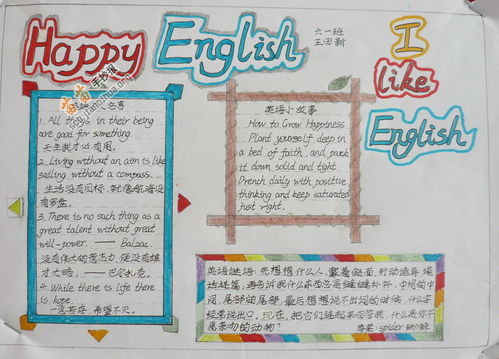 Happy English
六一班
王田新
I
like
English
名言
1. All things in their being
are good for something.
天生我才必有用。
2. Living without an aim is like
sailing without a compass.
生活没有目标,就像航海没
有罗盘。
3. There is no such thing as a
great talent without great
will-power. —— Balzac
没有伟大的意志力,便没有雄
才大略。—— 巴尔扎克。
4. While there is life there
is hope.
一息若存,希望不灭。
英语小故事
How to Grow Happiness
Plant yourself deep in
a bed of faith, and pack
it down solid and tight.
Drench daily with positive
thinking and keep saturated
just right.
英语谜语:先想想什么人,戴着假面,行动诡异

再告诉我什么东西总是缝缝补补,中间的中
间,尾部的尾部,最后想想说不出词的时候,什么字
经常说出口。现在,把它们连起来回答我,什么是你不
愿亲吻的动物?
答案:spider 蜘蛛